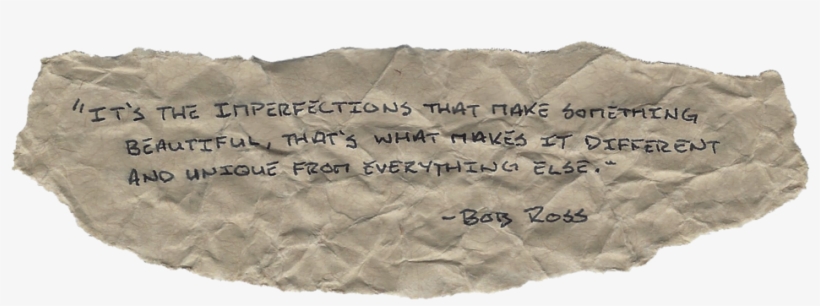 "IT'S THE IMPERFECTIONS THAT MAKE SOMETHING
BEAUTIFUL, THAT'S WHAT MAKES IT DIFFERENT
AND UNIQUE FROM EVERYTHING ELSE."
-BOB ROSS